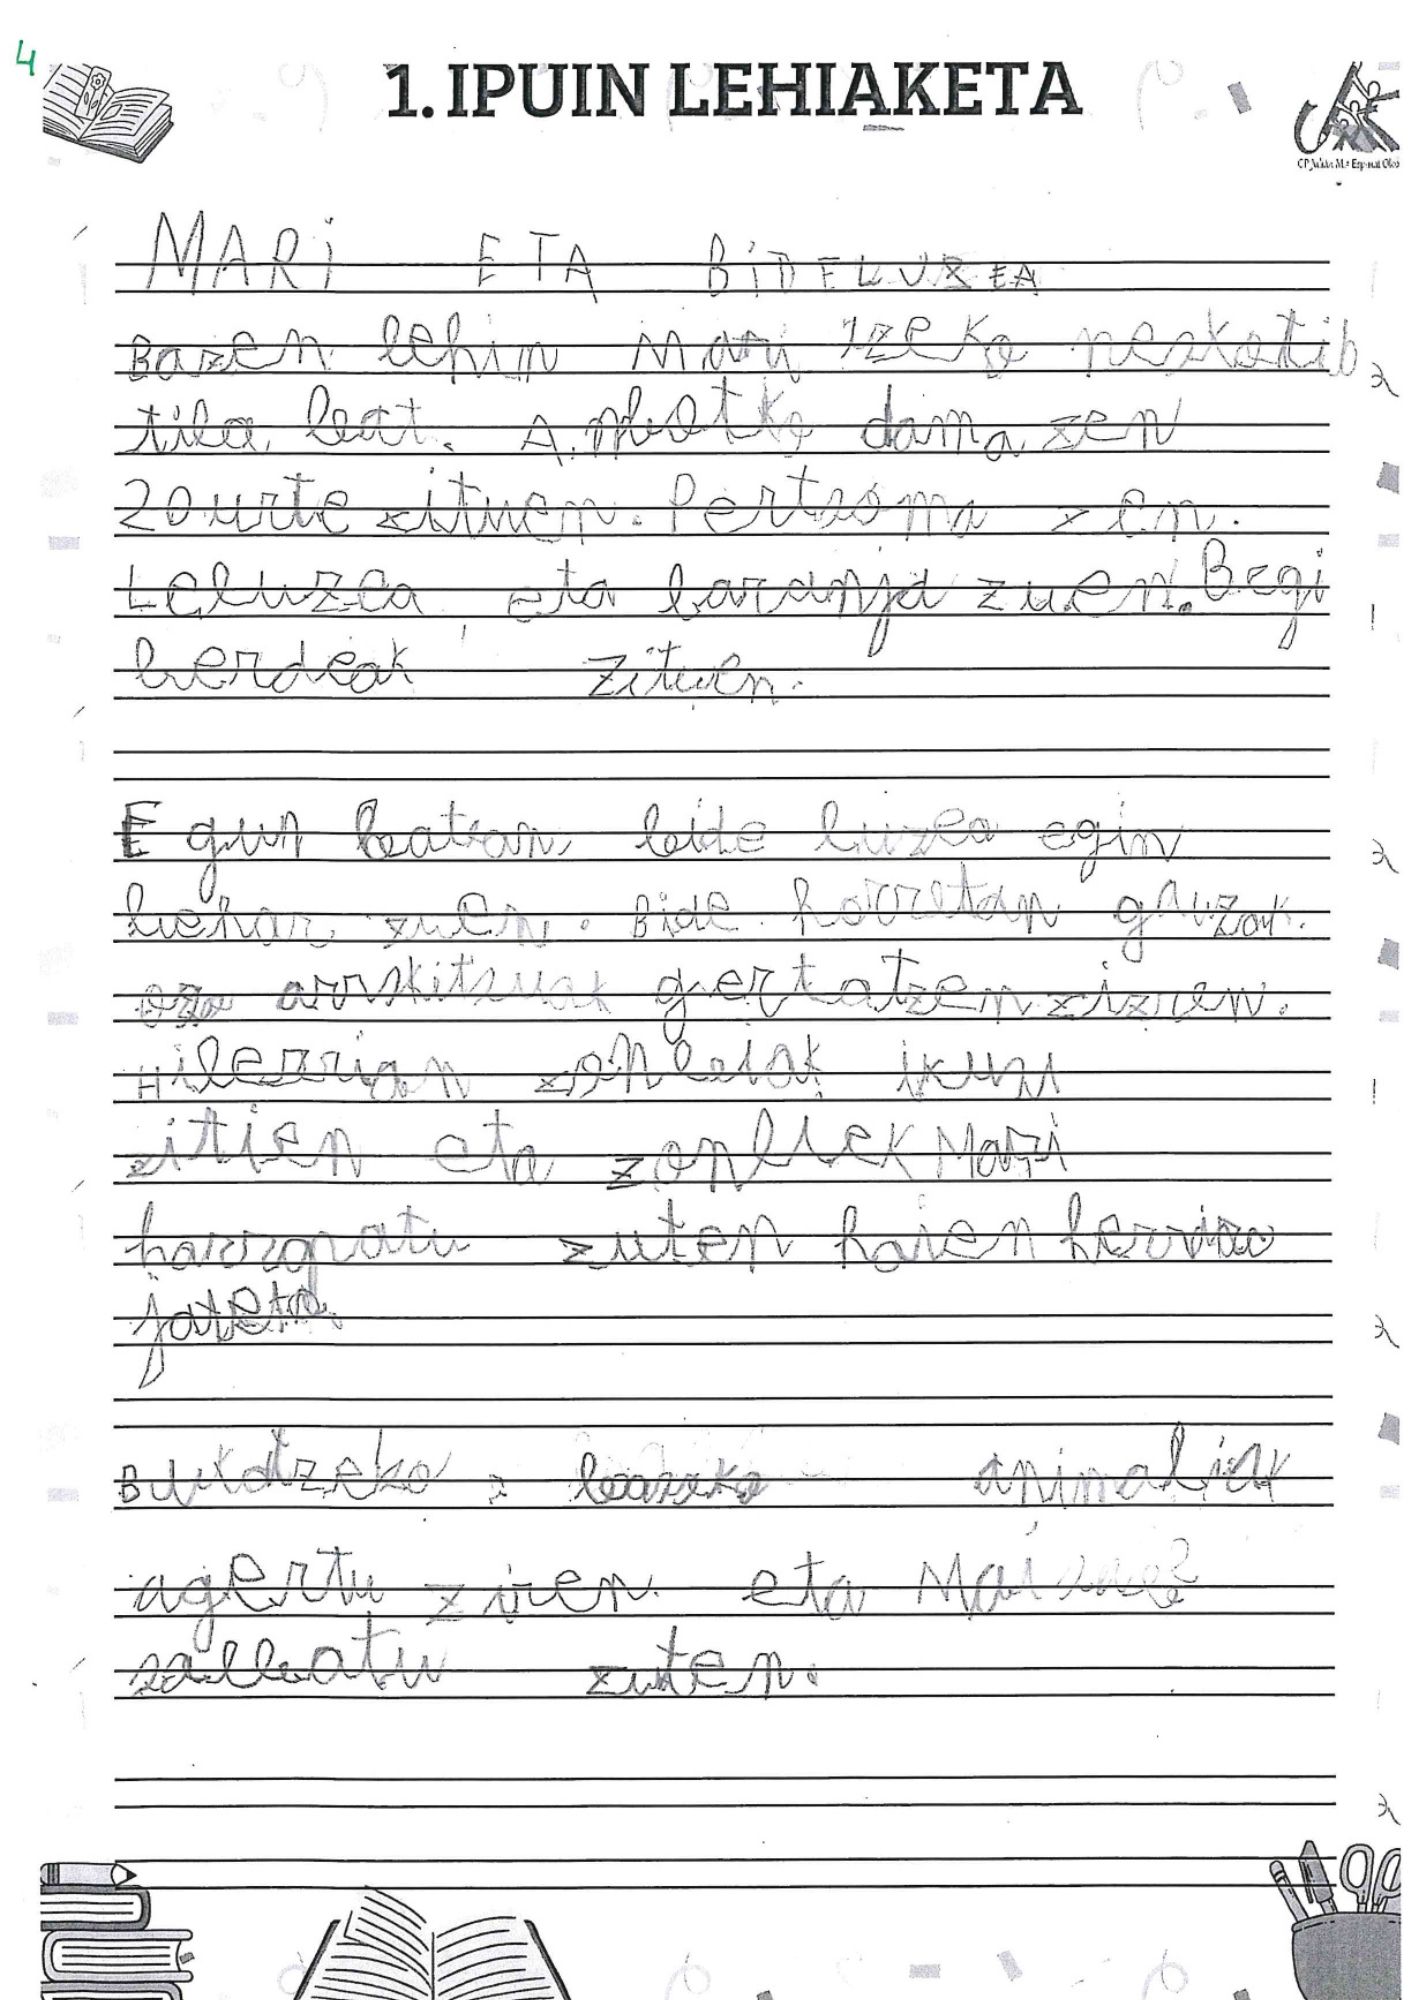 4
1. IPUIN LEHIAKETA
MARi ETA BiDE LUZEA
Bazen behin Mari izeko neskatib
tila bat. A. dama zen
20 urte zituen. Pertsona zen.
Leluzea eta laranja zuen. Begi
berdeak zituen.
E gun batean bide luzea egin
behar zuen. Bide horretan gauzak.
oso arriskitsuak gertatzen ziren.
Hilerrian zonbiak ikusi
zitien eta zonbiek Mari
harrapatu zuten haien herrira
jateko
Bukatzeko : basoko animaliak
agertu ziren eta Mari
salbatu zuten.